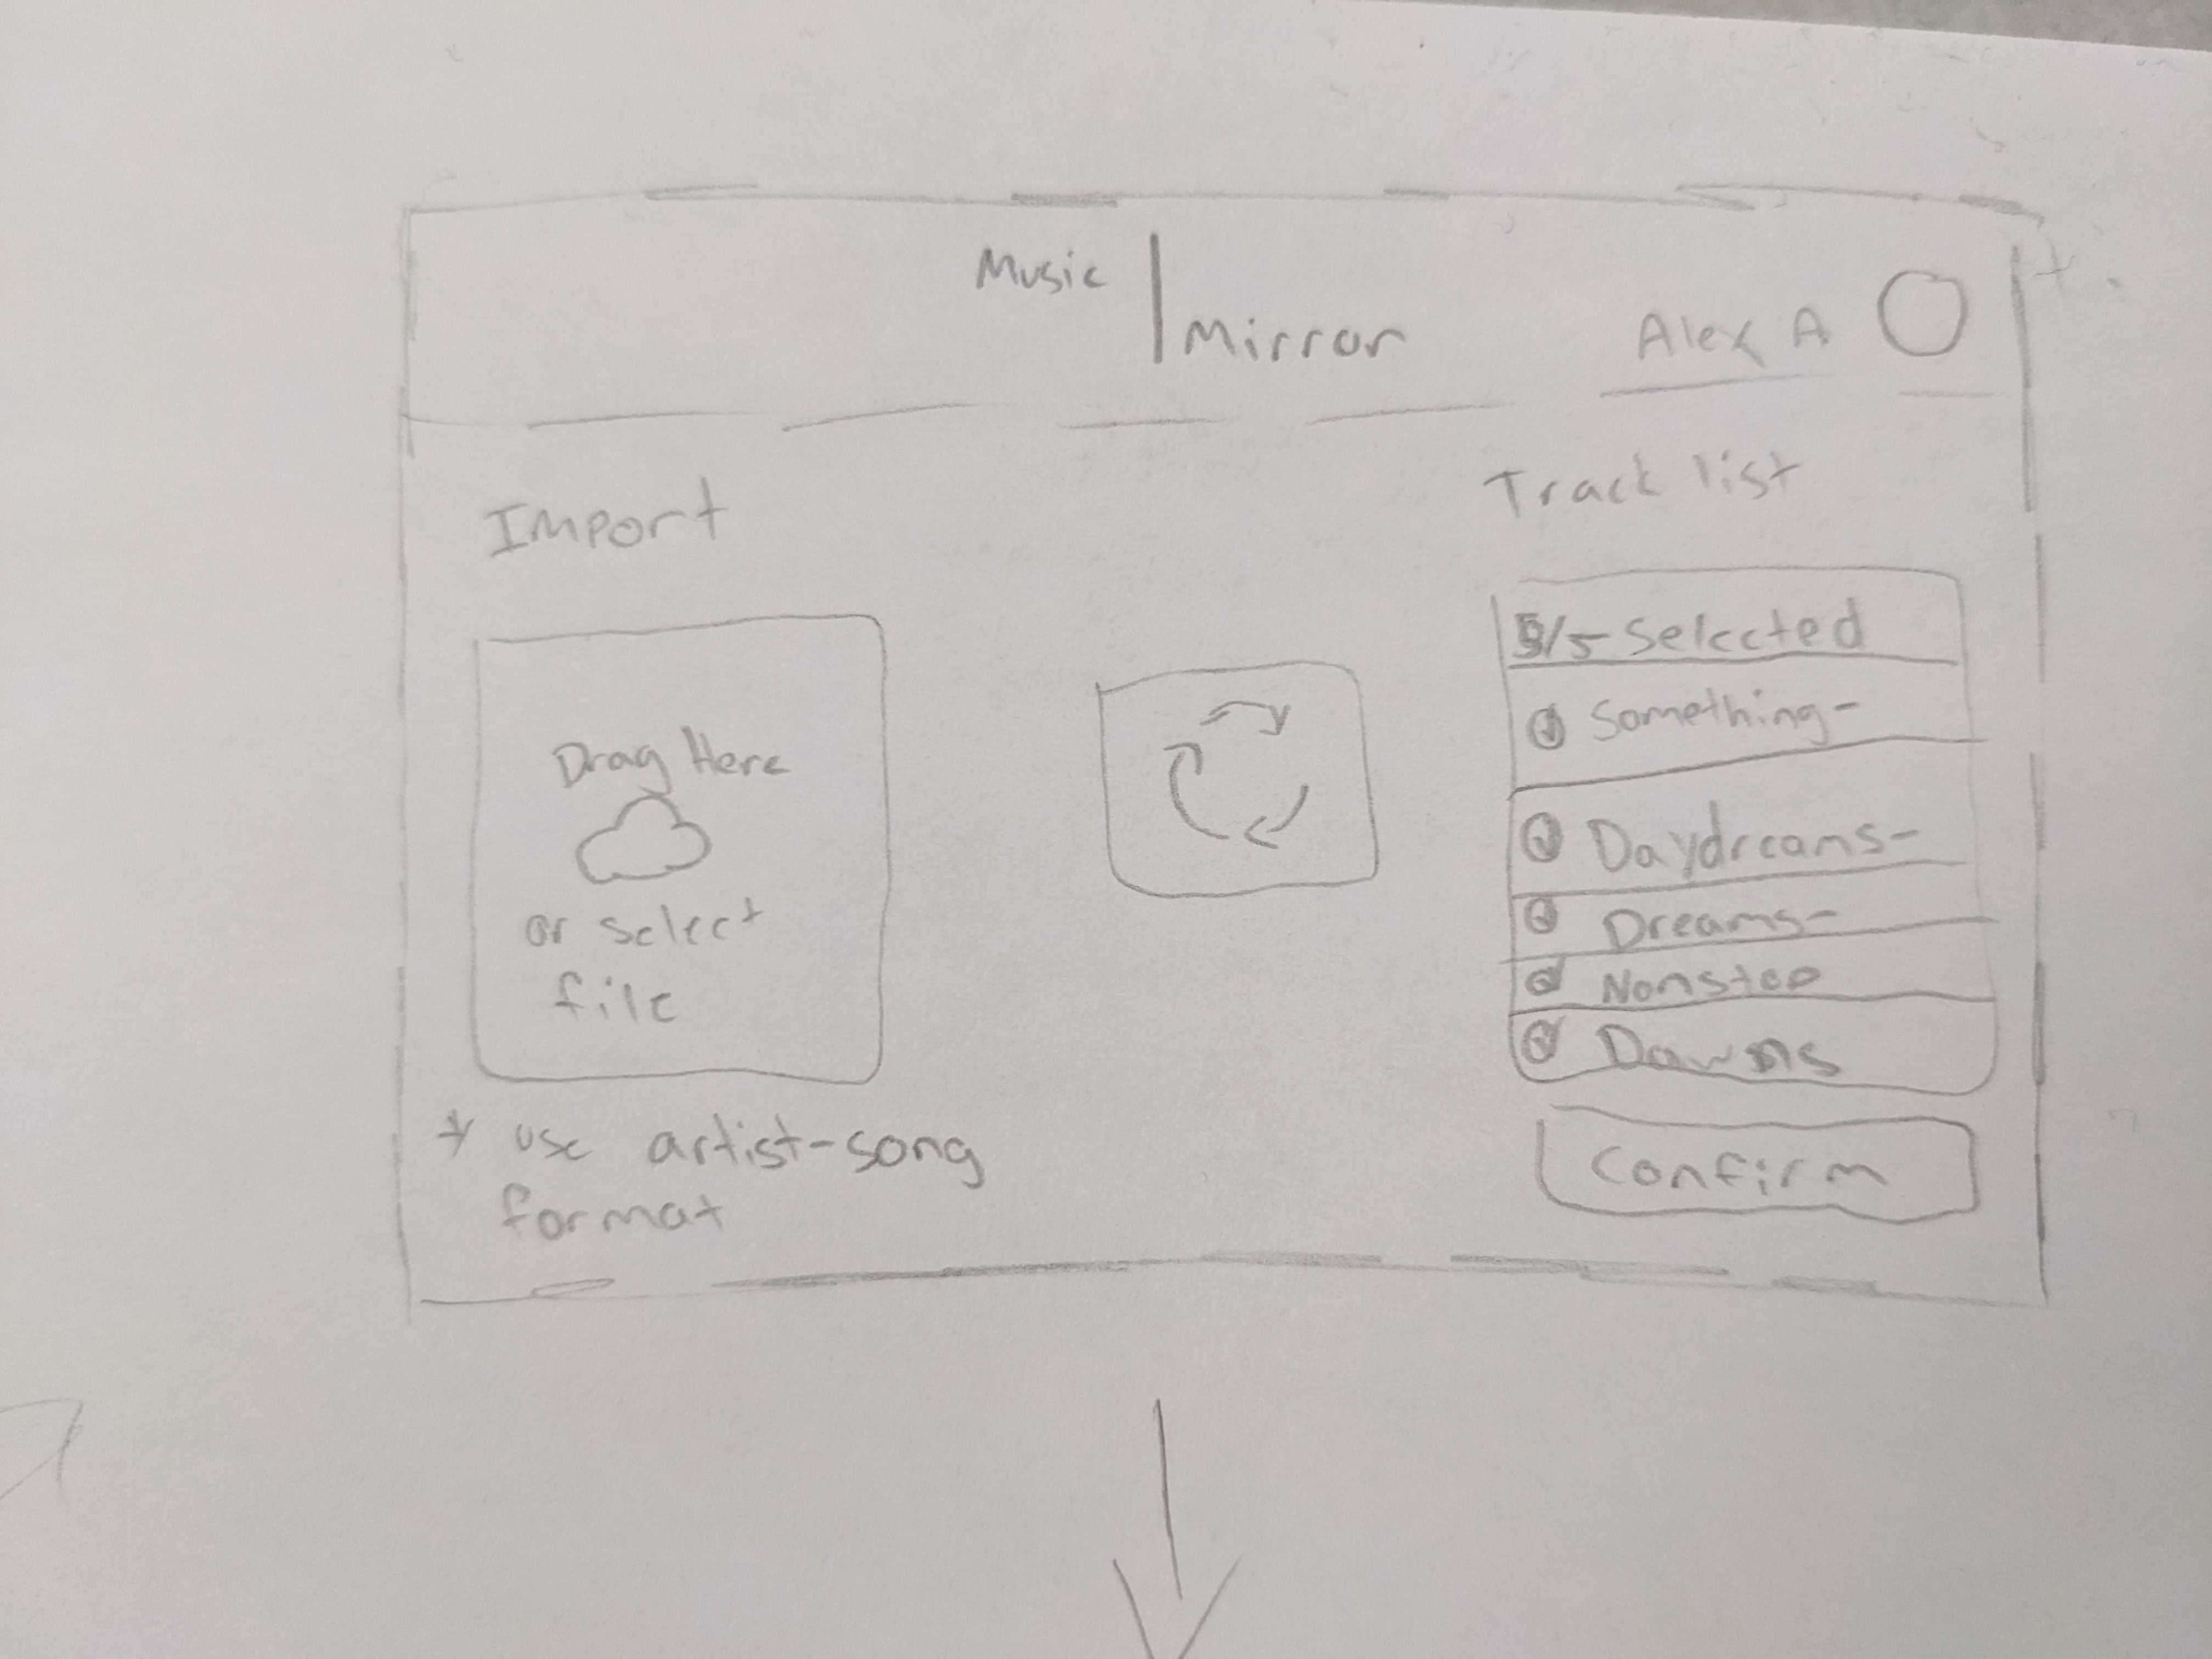 Music
Mirror
Alex A
Import
Drag Here
or select
file
* use artist-song
format
Track list
5/5 Selected
Something-
Daydreams-
Dreams-
Nonstop
Dawns
Confirm